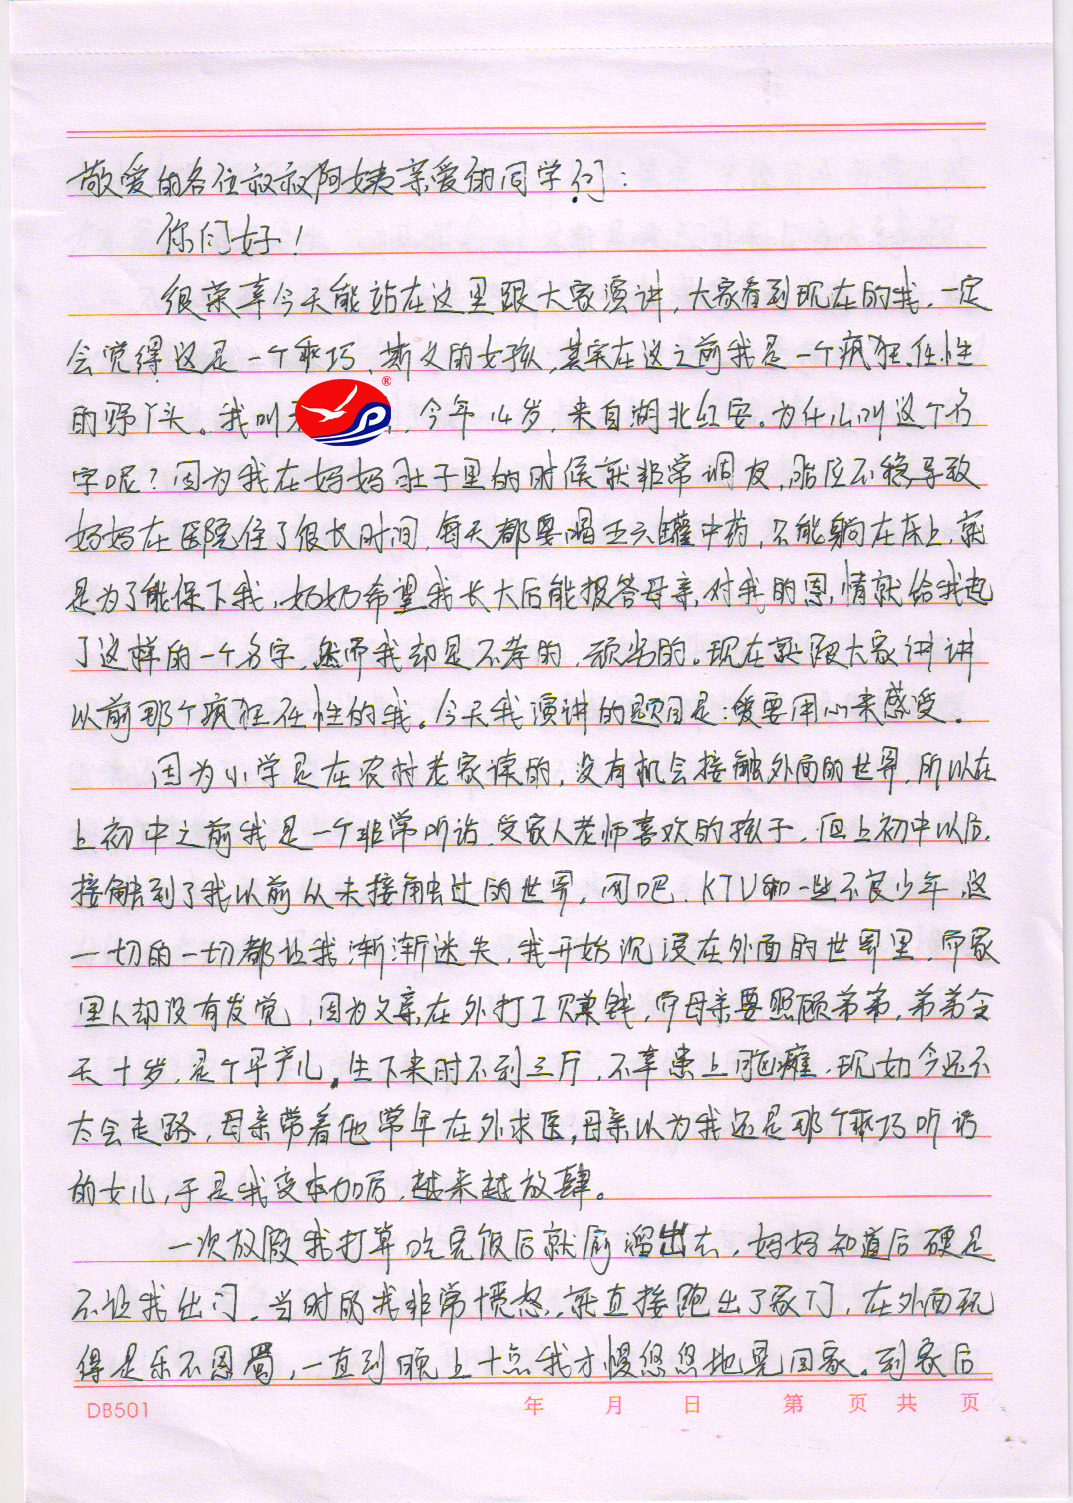 敬爱的各位叔叔阿姨亲爱的同学们:
你们好!
很荣幸今天能站在这里跟大家演讲,大家看到现在的我,一定
会觉得这是一个乖巧、斯文的女孩,其实在这之前我是一个疯狂、任性
的野丫头。我叫 ® P ,今年14岁,来自湖北红安。为什么叫这个名
字呢?因为我在妈妈肚子里的时候就非常调皮,胎位不稳导致
妈妈在医院住了很长时间,每天都要喝五六罐中药,只能躺在床上,就
是为了能保下我,奶奶希望我长大后能报答母亲对我的恩情就给我起
了这样的一个名字,然而我却是不孝的,顽劣的。现在就跟大家讲讲
以前那个疯狂任性的我。今天我演讲的题目是:爱要用心来感受。
因为小学是在农村老家读的,没有机会接触外面的世界,所以在
上初中之前我是一个非常听话,受家人老师喜欢的孩子,但上初中以后,
接触到了我以前从未接触过的世界,网吧、KTV和一些不良少年,这
一切的一切都让我渐渐迷失,我开始沉浸在外面的世界里,而家
里人却没有发觉,因为父亲在外打工赚钱,而母亲要照顾弟弟,弟弟今
天十岁,是个早产儿,生下来时不到三斤,不幸患上脑瘫,现如今还不
太会走路,母亲带着他常年在外求医,母亲以为我还是那个乖巧听话
的女儿,于是我变本加厉,越来越放肆。
一次放假我打算吃完饭后就偷溜出去,妈妈知道后硬是
不让我出门,当时的我非常愤怒,就直接跑出了家门,在外面玩
得是乐不思蜀,一直到晚上十点我才慢悠悠地晃回家。到家后
DB501 年 月 日 第 页 共 页